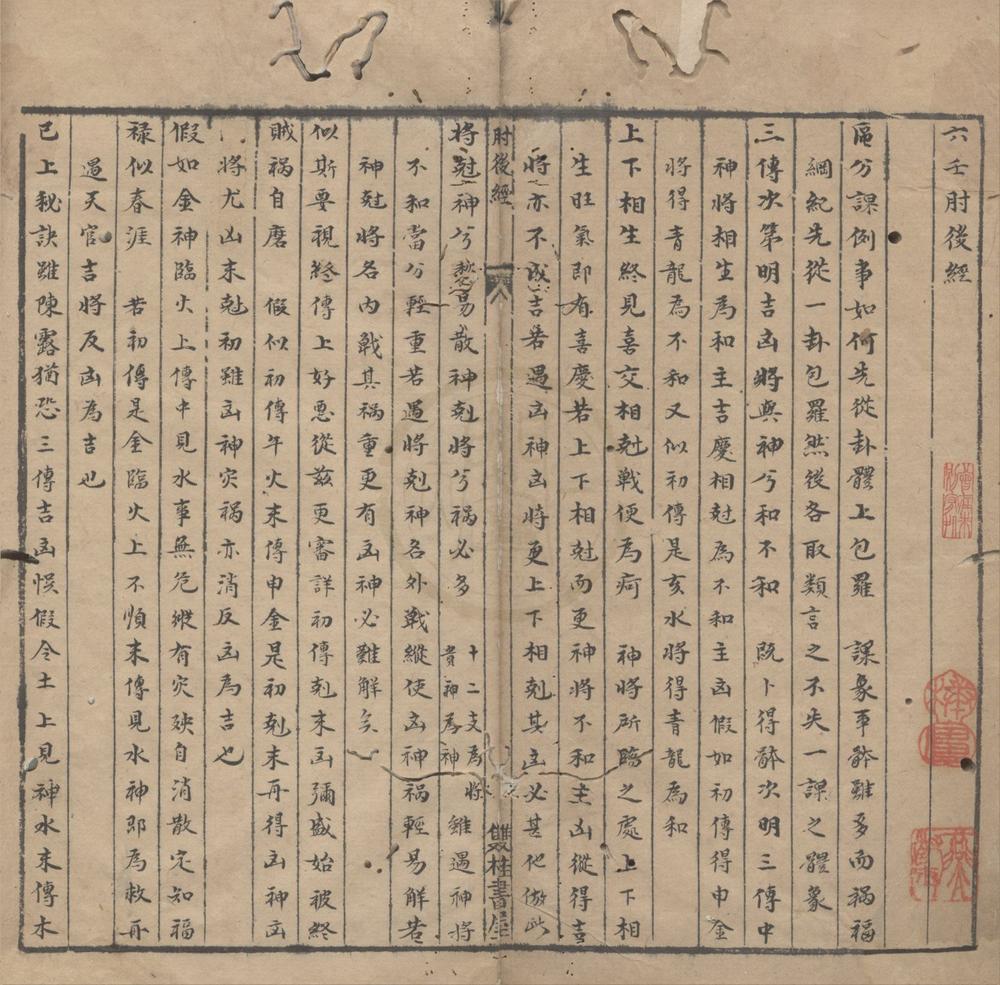 六壬肘後經
區分課例事如何先從卦體上包羅　課象事体雖多而禍福
綱紀先從一卦包羅然後各取類言之不失一課之體象
三傳次第明吉凶將與神兮和不和　既卜得體次明三傳中
神將相生為和主吉慶相尅為不和主凶假如初傳得申金
將得青龍為不和又似初傳是亥水將得青龍為和
上下相生終見喜交相尅戰便為疴　神將所臨之處上下相
生旺氣即有喜慶若上下相尅而更神將不和主凶從得吉
將亦不成吉若遇凶神凶將更上下相剋其凶必甚他倣此
肘後經
雙桂書屋
將尅神兮愁易散神剋將兮禍必多　十二支為將
貴神為神　雖遇神將
不和當分輕重若遇將剋神名外戰縱使凶神禍輕易解若
神尅將名內戰其禍重更有凶神必難解矣
似斯要視終傳上好惡從茲更審詳初傳剋末凶彌盛始被終
賊禍自磨　假似初傳午火末傳申金是初剋末再得凶神凶
將尤凶末尅初雖凶神灾禍亦消反凶為吉也
假如金神臨火上傳中見水事無危縱有灾殃自消散定知福
祿似春涯　若初傳是金臨火上不順末傳見水神即為救再
遇天官吉將反凶為吉也
已上秘訣雖陳露猶恐三傳吉凶悞假令土上見神水末傳木